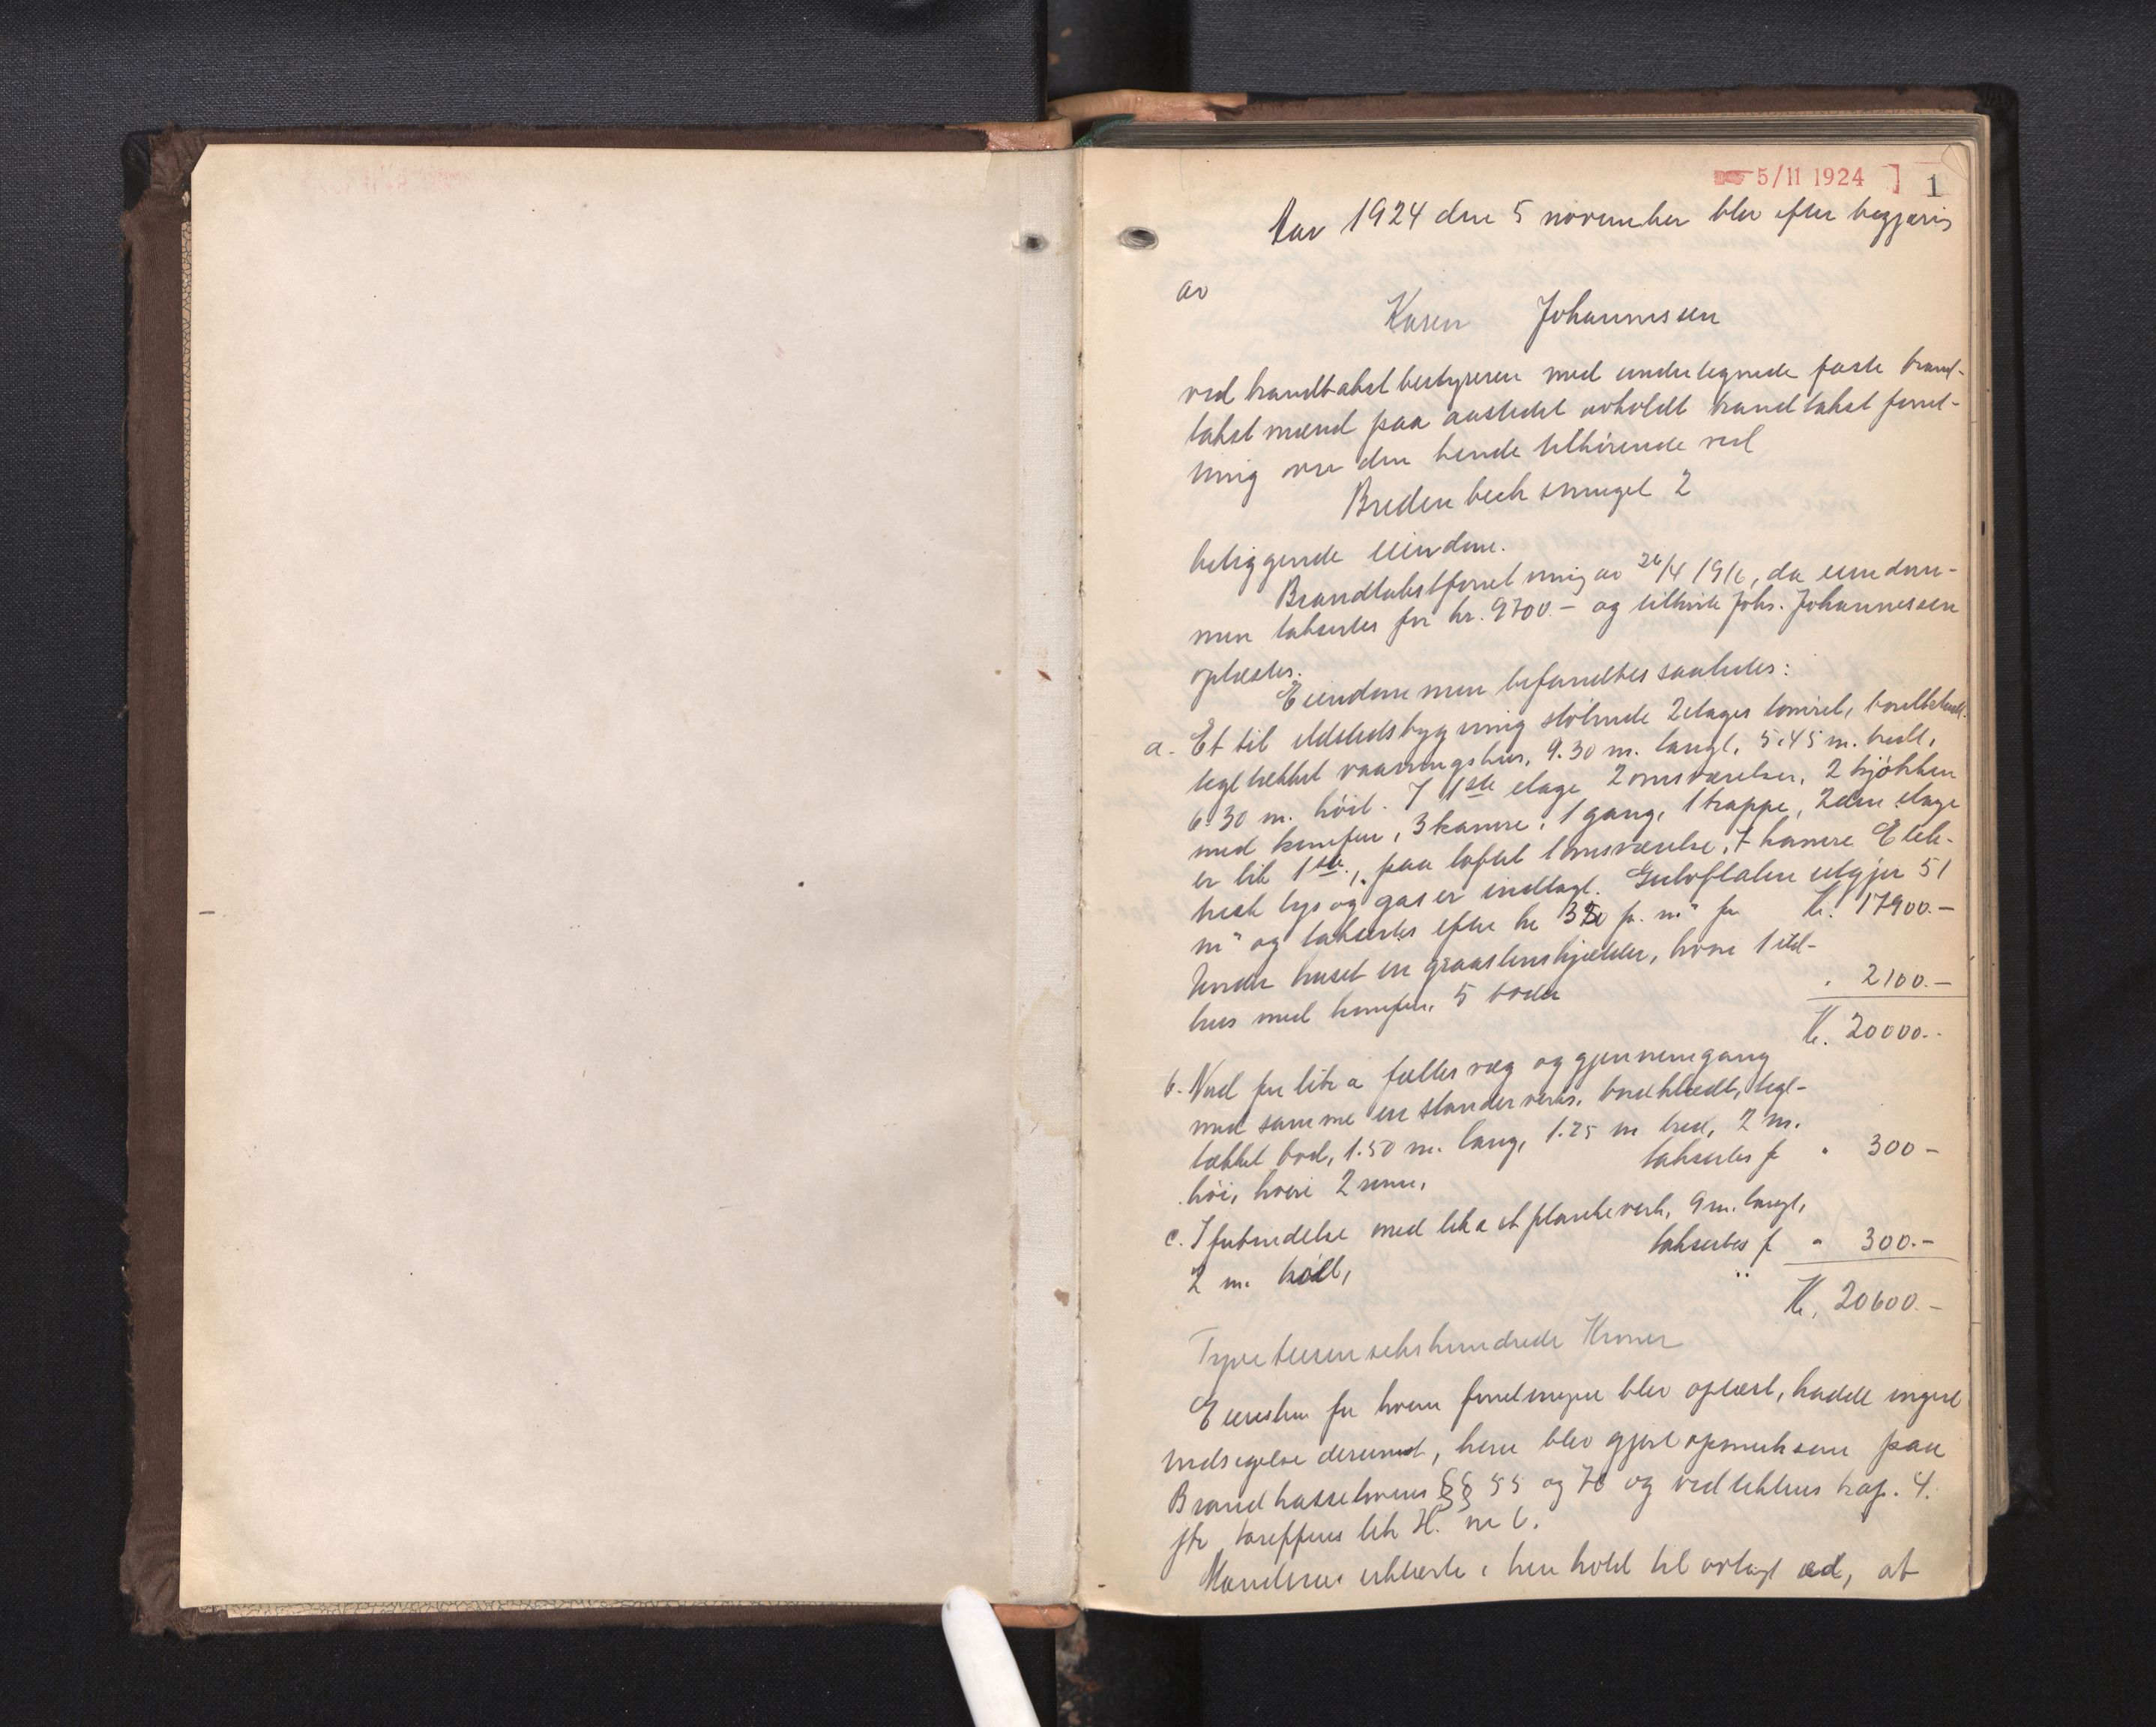 5/11 1924 ] 1
Aar 1924 den 5 november blev efter begjæring
av
Karen Johannessen
ved brandtakstbestyreren med undertegnede faste brand-
takstmænd paa aastedet avholdt brandtakstforret-
ning over den hende tilhørende ved
Bredenbecksmuget 2
beliggende eiendom.
Brandtakstforretning av 26/4 1916, da eiendom-
men takseres for kr. 9700.- og tilhørte Johs. Johannessen
oplæstes.
Eiendommen befandtes saaledes:
a. Et til ildstedsbygning støtende 2etages tømret, bordklædt,
tegltækket vaaningshus, 9.30 m. langt, 5.45 m. bredt,
6.30 m. høit. I 1ste etage 2 onsværelser, 2 kjøkken
med komfur, 3 kamre, 1 gang, 1 trappe, 2den etage
er lik 1ste, paa loftet 1 onsværelse, 7 kamre Elek-
trisk lys og gas er indlagt. Gulvflaten utgjør 51
m² og takseres efter kr 350 pr. m² for Kr. 17900.-
Under huset en graastenskjelder, hvori 1 ild-
hus med komfur, 5 boder " 2100.-
Kr. 20000.-
b. Ved for litr a fælles væg og gjennemgang
med samme en standerverks, bordklædt, tegl-
tækket bod, 1.50 m. lang, 1.25 m bred, 2 m.
høi, hvori 2 rum, takseres f " 300 -
c. I forbindelse med litr a et plankeverk, 9 m. langt,
2 m. høit, takseres f " 300.-
Kr. 20600.-
Tyvetusensekshundrede Kroner
Eiersken for hvem forretningen blev oplæst, hadde ingen
indsigelse derimot, hun blev gjort opmerksom paa
Brandkasselovens §§ 55 og 70 og vedtektens kap. 4.
jfr tariffens litr H. nr 6.
Mændene erklærte i henhold til avlagt ed, at